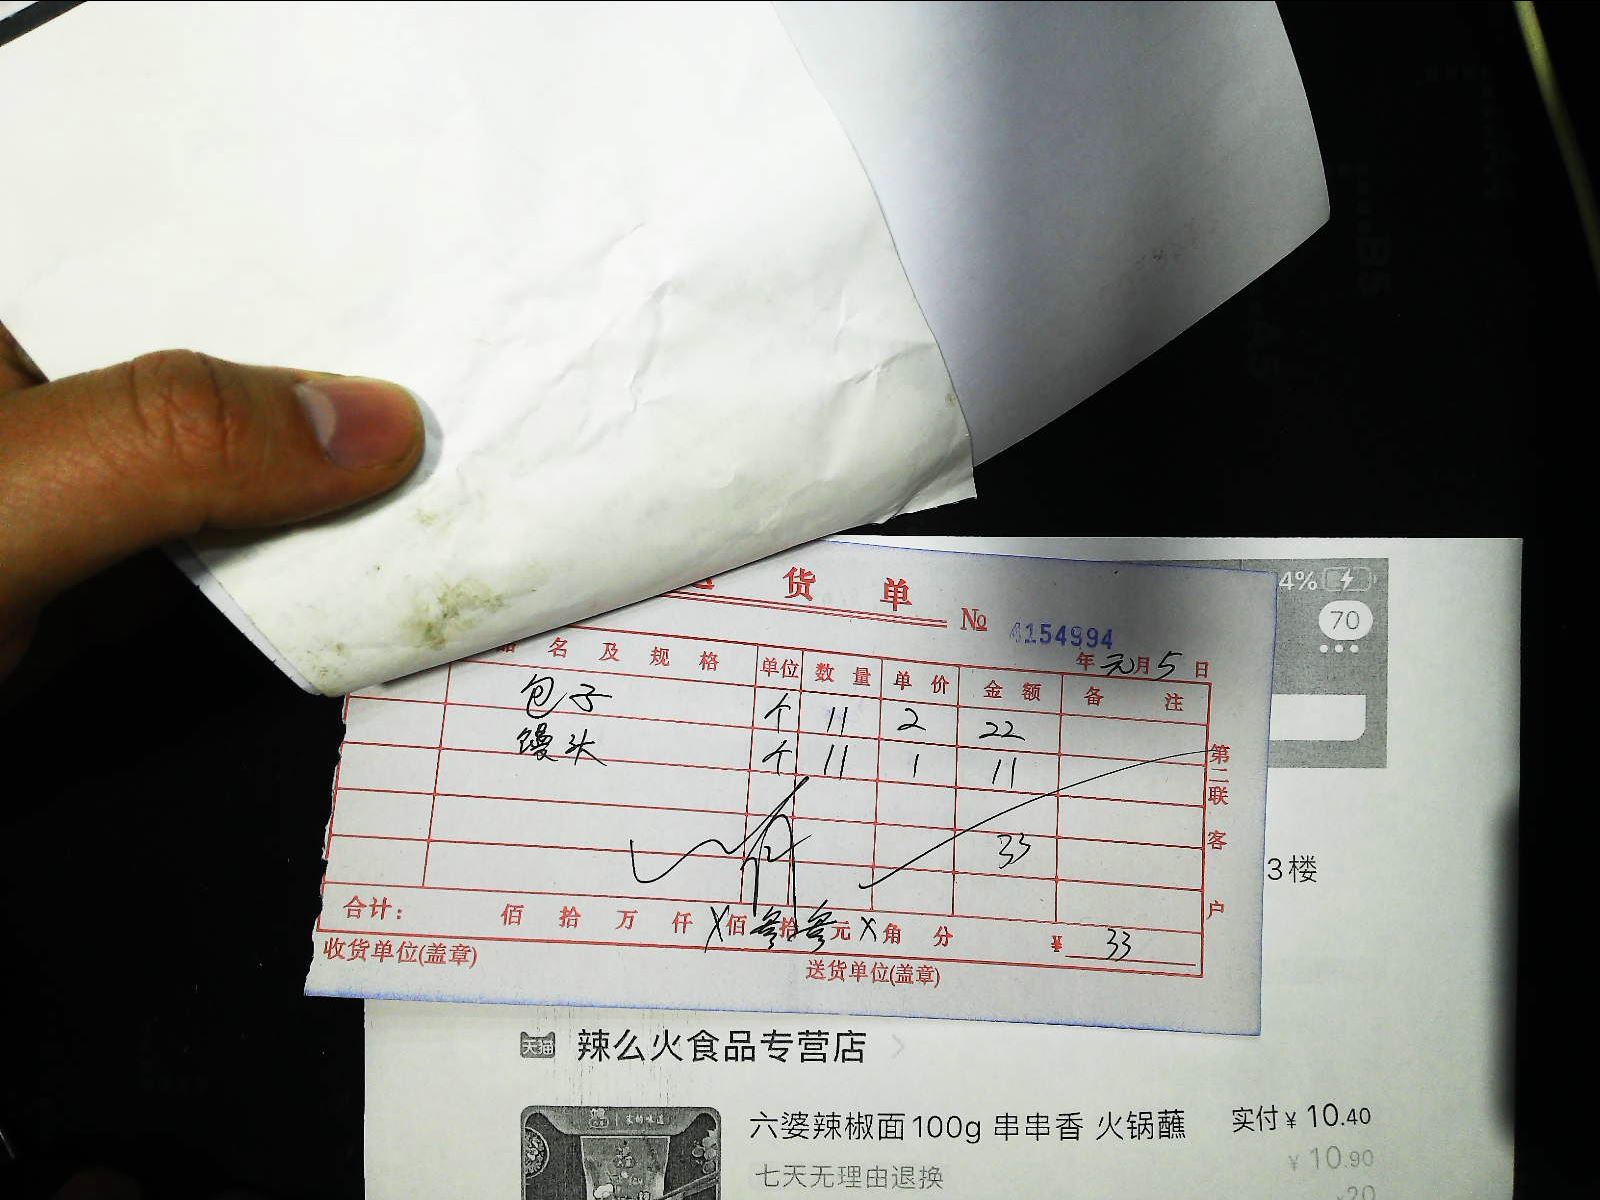 货单
№ 4154994
年元月5日
名及规格 单位 数量 单价 金额 备注
包子 个 11 2 22
馒头 个 11 1 11
33
合计： 佰拾万仟X佰叁拾叁元X角分 ¥ 33
收货单位(盖章) 送货单位(盖章)
第二联 客户
4%
70
3楼
天猫 辣么火食品专营店
六婆辣椒面100g 串串香 火锅蘸 实付¥10.40
七天无理由退换 ¥10.90